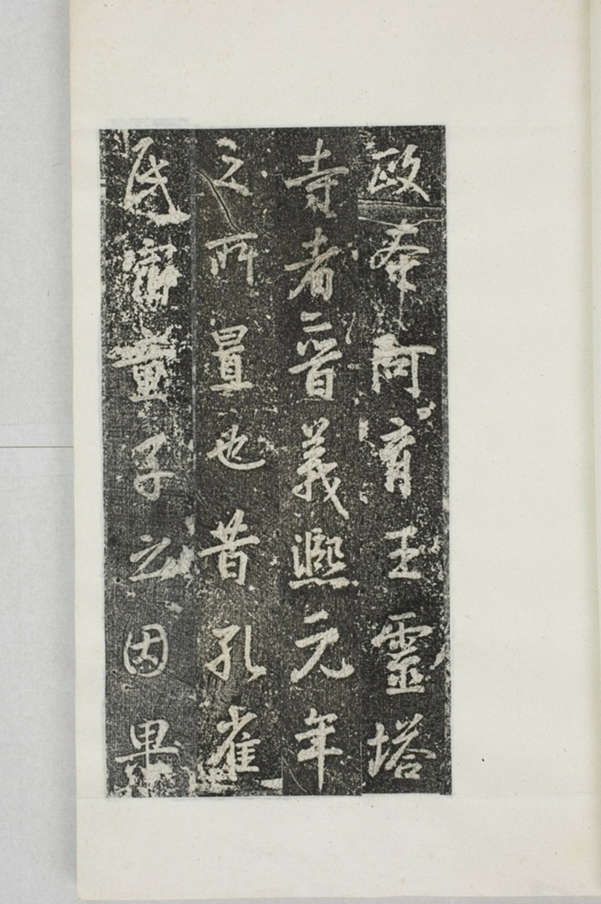 政本阿育王靈塔
寺者晉義熙元年
之所置也昔孔雀
氏宿童子之因果